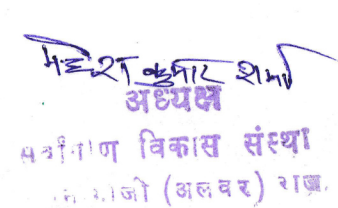 महेश कुमार शर्मा
अध्यक्ष
विकास संस्था
(अलवर) राज.